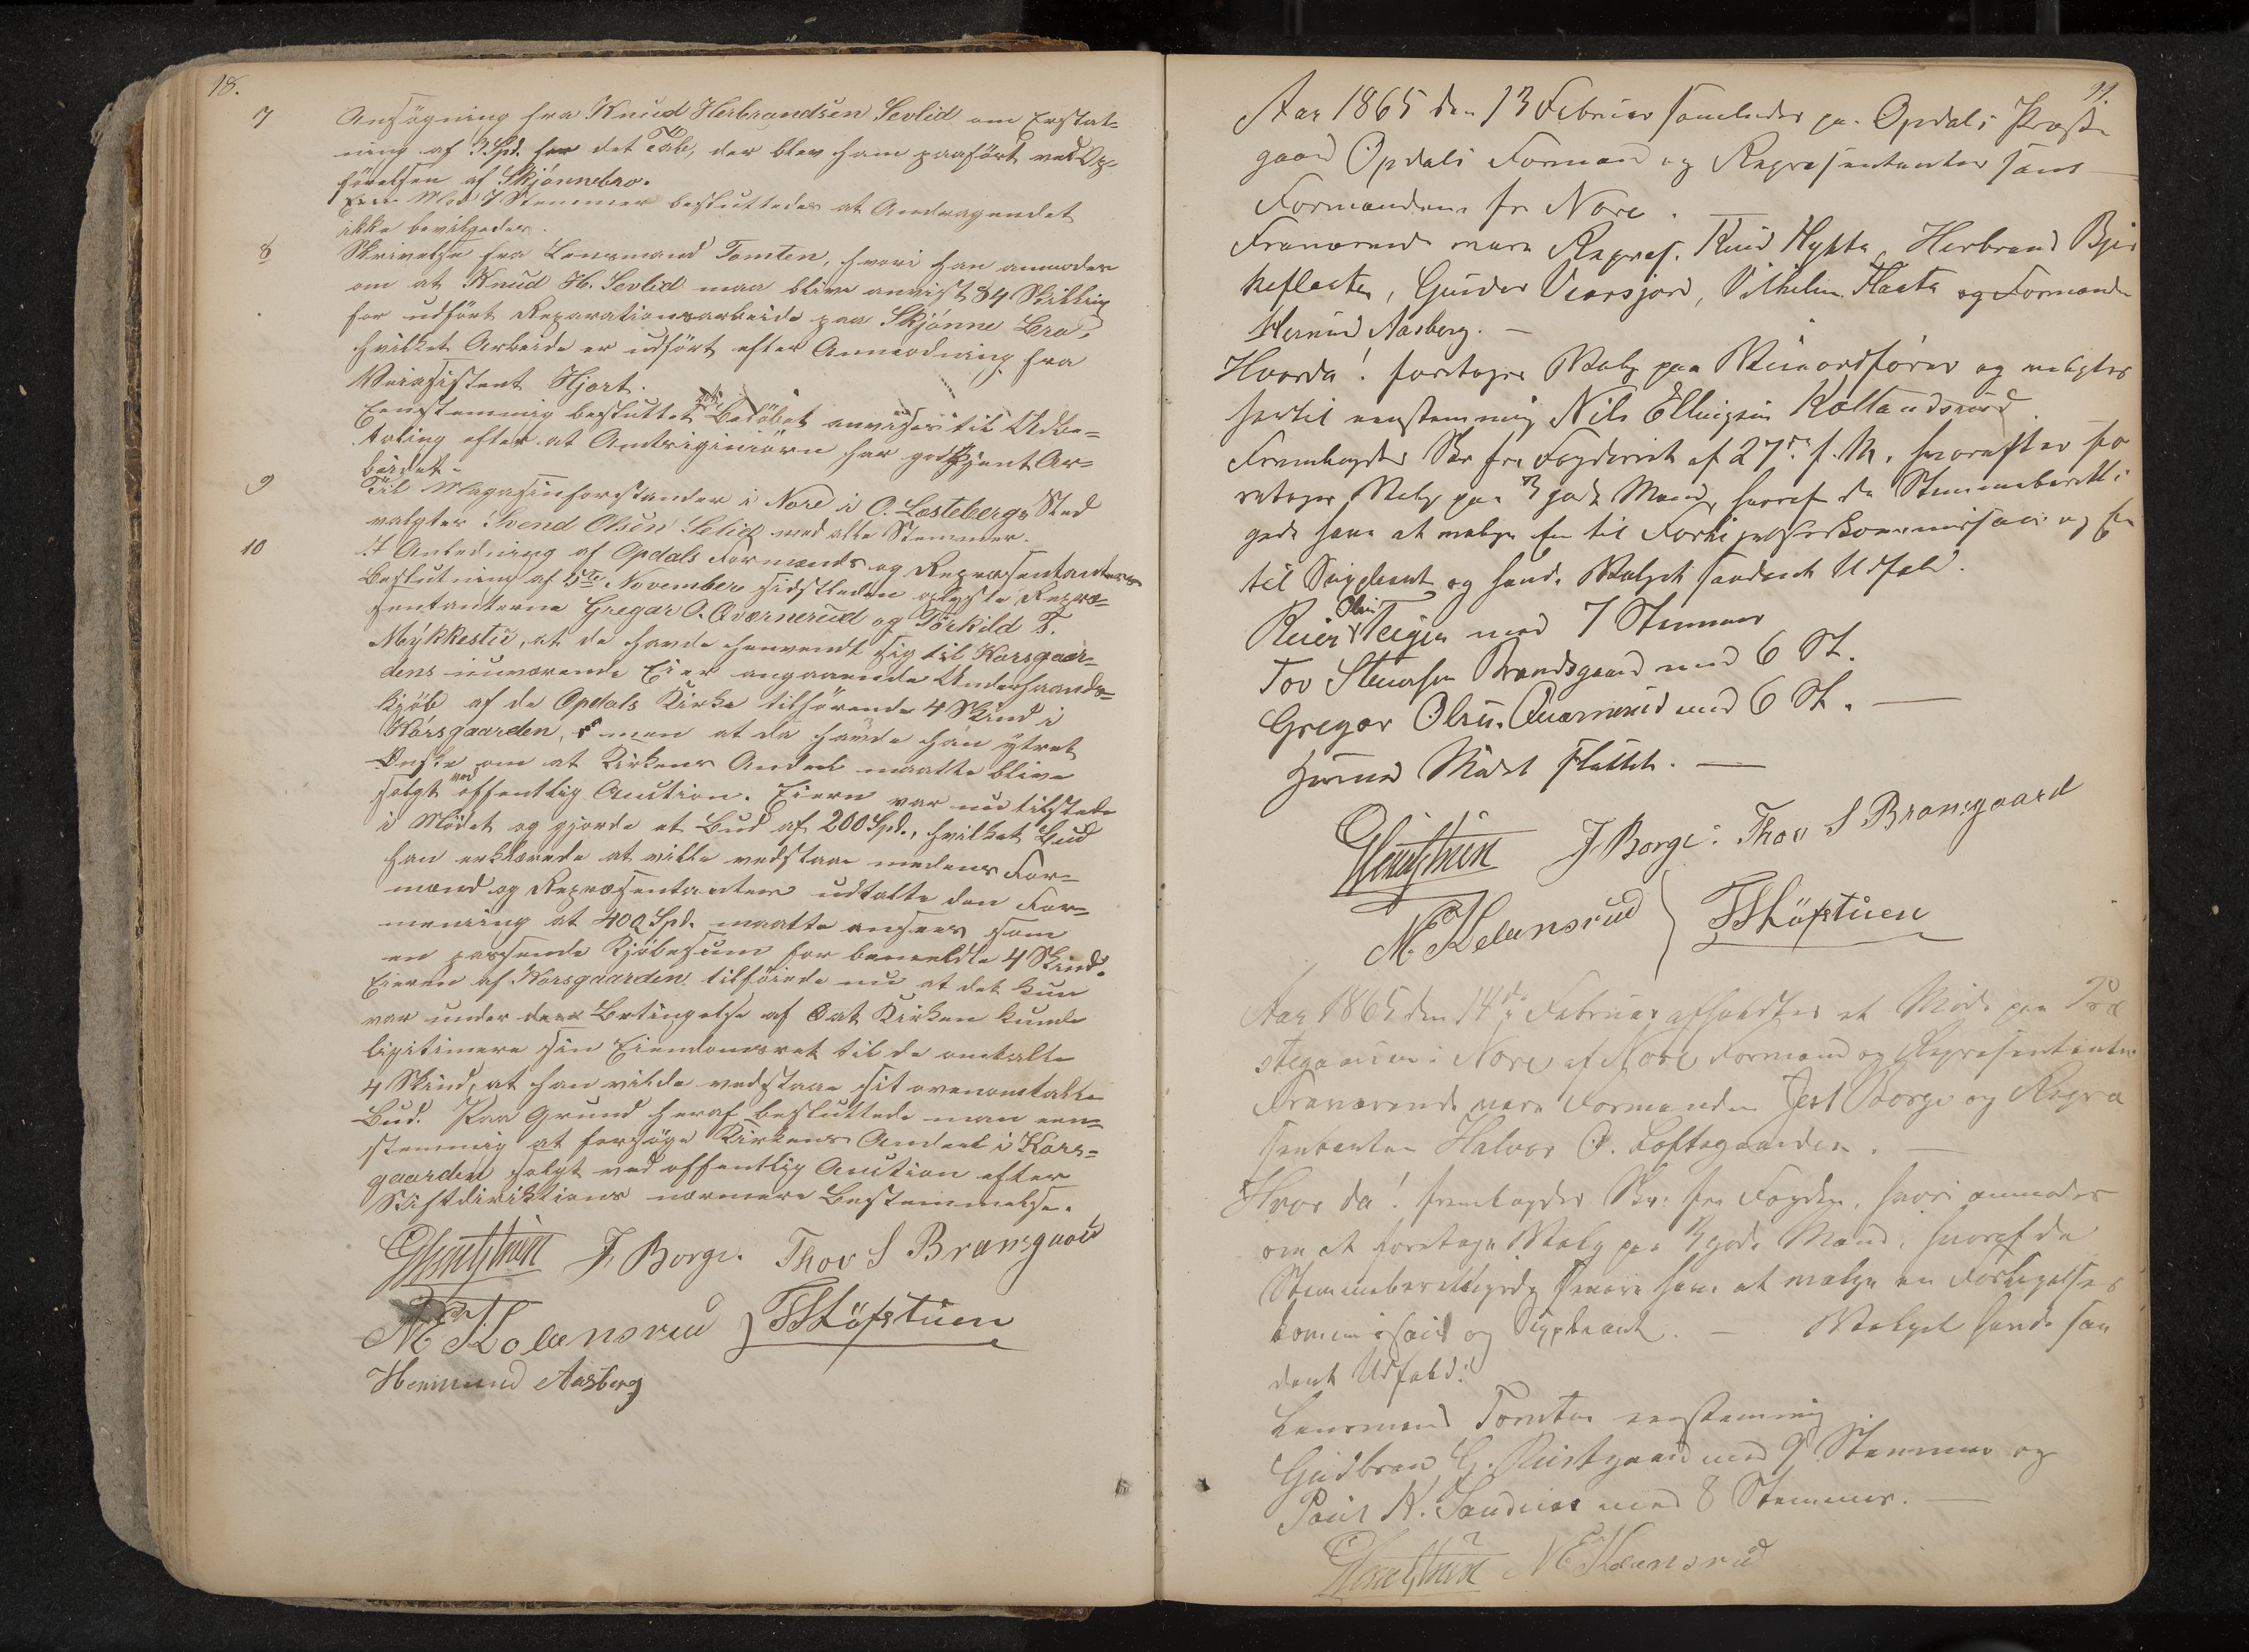 18.
7 Ansøgning fra Knud Herbrandsen Sevlid om Erstat-
ning af 3 Spd. for det Tab, der blev ham paaført ved Op-
førelsen af Skjønnebro.
Med 7 Stemmer besluttedes at Andragendet
ikke bevilgedes.
8 Skrivelse fra Lensmand Tomten, hvori han anmoder
om at Knud H. Sevlid maa blive anvist 84 Skilling
for udført Reparationsarbeide paa Skjønne Bro,
hvilket Arbeide er udført efter Anmodning fra
Veiassistent Hjort.
Eenstemmig besluttet at Beløbet anvises til Udbe-
taling efter at Amtsingeniøren har godkjent Ar-
beidet.
9 Til Magasinforstander i Nore i O. Løstebergs Sted
valgtes Svend Olsen Selid med alle Stemmer.
10 I Anledning af Opdals Formænds og Repræsentanters
Beslutning af 5te November sidstleden oplyste Repræ-
sentanterne Gregar O. Qværnerud og Torkild T.
Mykkestu, at de havde henvendt sig til Korsgaar-
dens nuværende Eier angaaende Underhaands-
kjøb af de Opdals Kirke tilhørende 4 Skind i
Korsgaarden, men at da havde han ytret
Ønske om at Kirkens Andel maatte blive
solgt ved offentlig Auction. Eieren var nu tilstede
i Mødet og gjorde et Bud af 200 Spd., hvilket Bud
han erklærede at ville vedstaae medens For-
mænd og Repræsentanter udtalte den For-
mening at 400 Spd. maatte ansees som
en passende Kjøbesum for bemeldte 4 Skind.
Eieren af Korsgaarden tilføiede nu at det kun
var under den Betingelse af at Kirken kunde
legitimere sin Eiendomsret til de omtalte
4 Skind, at han vilde vedstaae sit ovenomtalte
Bud. Paa Grund heraf besluttede man een-
stemmig at forsøge Kirkens Andel i Kors-
gaarden solgt ved offentlig Auction efter
Stiftdirektionens nærmere Bestemmelse.
J. Borge. Thov S Bransgaard
Hermund Aasberg
11.
Aar 1865 den 13 Februar samledes paa Opdals Præste
gaard Opdals Formænd og Repræsentanter samt
Formændene fra Nore.
Fraværende vare Repræs. Knud Herbrand
og Formand
Hermund Aasberg. –
Hvorda! foretoges Valg paa Viceordfører og valgtes
hertil eenstemmig Nils Ellingsen
Fremlagdes Skr fra Fogderiet af 27de f. M. hvorefter fo
retoges Valg paa 3 gode Mænd, hvoraf de Stemmeberetti
gede have at vælge en til Forligelseskommissair og en
til Supleant og havde Valget saadant Udfald.
Reier Olsen Teigen med 7 Stemmer
Tov Steensen Brandsgaard med 6 St.
Gregar Olsen Qværnerud med 6 St. –
Hermed Mødet sluttet. –
J Borge. Thov S Bransgaard
Aar 1865 den 14de Februar afholdtes et Møde paa Præ
stegaarden i Nore af Nore Formænd og Repræsentanter
Fraværende vare Formanden Joel Borge og Repræ
sentanten Halvor O. Loftsgaarden. –
Hvor da! fremlagdes Skr. fra Fogden, hvori anmodes
om at foretage Valg paa 3 gode Mænd, hvoraf de
Stemmeberettigede senere have at vælge en Forligelses
kommissair og Suppleant. – Valget havde saa
dant Udfald:
Lensmand Tomten eenstemmig
Gudbrand G. Rustgaard med 9 Stemmer og
Poul K. med 8 Stemmer. –